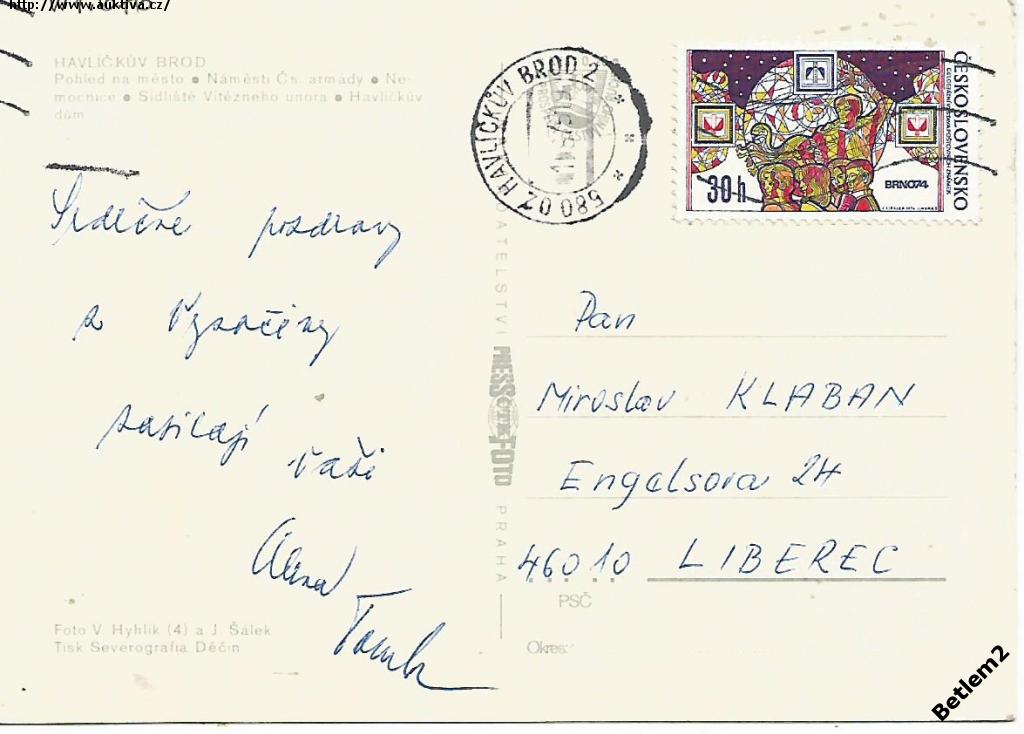 http://www.auktiva.cz/
HAVLÍČKŮV BROD
Pohled na město ● Náměstí Čs. armády ● Ne-
mocnice ● Sídliště Vítězného února ● Havlíčkův
dům
Srdečné pozdravy
z Vysočiny
zasílají
Vaši
Alena
Foto V. Hyhlík (4) a J. Šálek
Tisk Severografia Děčín
DATELSTVÍ PRESSFOTO PRAHA
HAVLÍČKŮV BROD 2
580 02
ČESKOSLOVENSKO
BRNO74
30h
Pan
Miroslav KLABAN
Engelsova 24
46010 LIBEREC
PSČ
Okres:
Betlem2